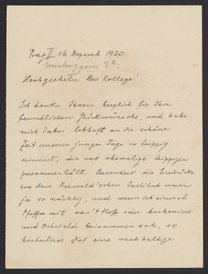 Prag II 16. Dezemb 1920
Weinberggasse 3a.
Hochgeehrter Herr Kollege!
Ich danke Ihnen herzlich für Ihre
freundlichen Glückwünsche, und habe
mich dabei lebhaft an die schöne
Zeit unserer jungen Tage in Leipzig
erinnert, die uns ehemalige Leipziger
zusammenhält. Besonders die Eindrücke
aus dem Ostwald'schen Institut waren
ja so mächtig, und wenn ich einmal
Pfeffer mit van't Hoff oder Arrhenius
und Ostwald beisammen sah, so
hinterliess das eine nachhaltige